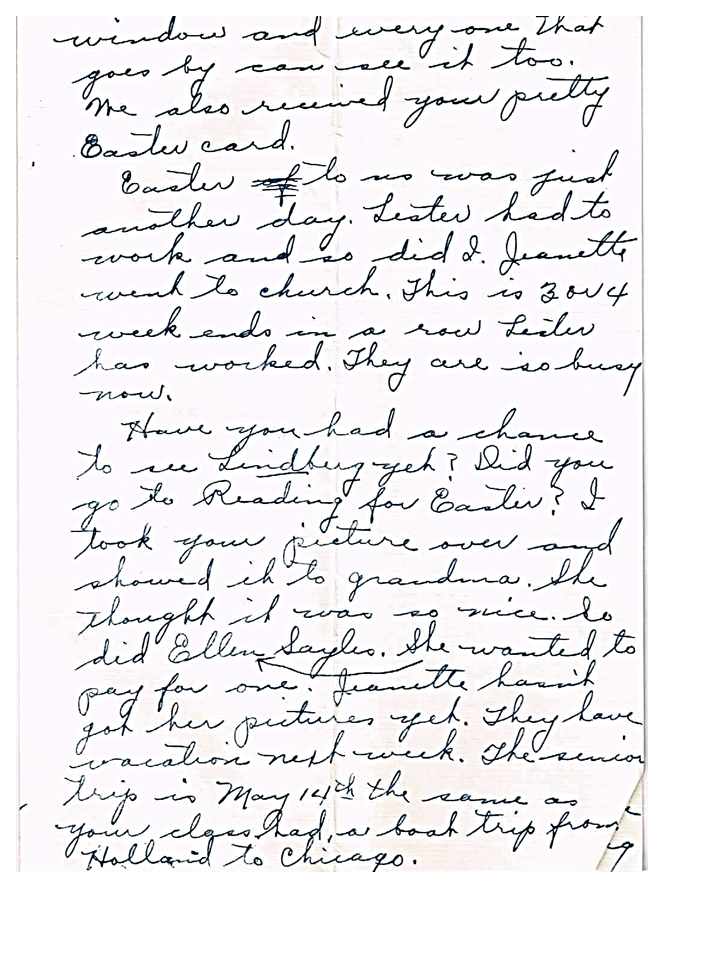 window and every one that
goes by can see it too.
We also received your pretty
Easter card.
Easter of to us was just
another day. Lester had to
work and so did I. Jeanette
went to church. This is 3 or 4
week ends in a row Lester
has worked. They are so busy
now.
Have you had a chance
to see Lindberg yet? Did you
go to Reading for Easter? I
took your picture over and
showed it to grandma. She
thought it was so nice. So
did Ellen Sayles. She wanted to
pay for one. Jeanette hasn't
got her pictures yet. They have
vacation next week. The senior
trip is May 14th the same as
your class had, a boat trip from
Holland to Chicago.